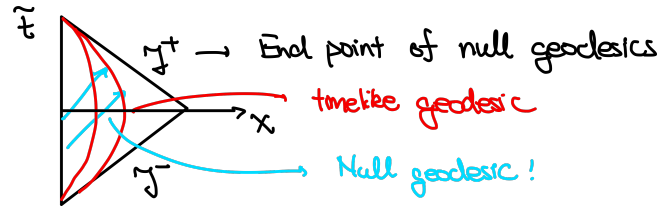 t̃
𝒥⁺ → End point of null geodesics
timelike geodesic
x
𝒥⁻
Null geodesic!